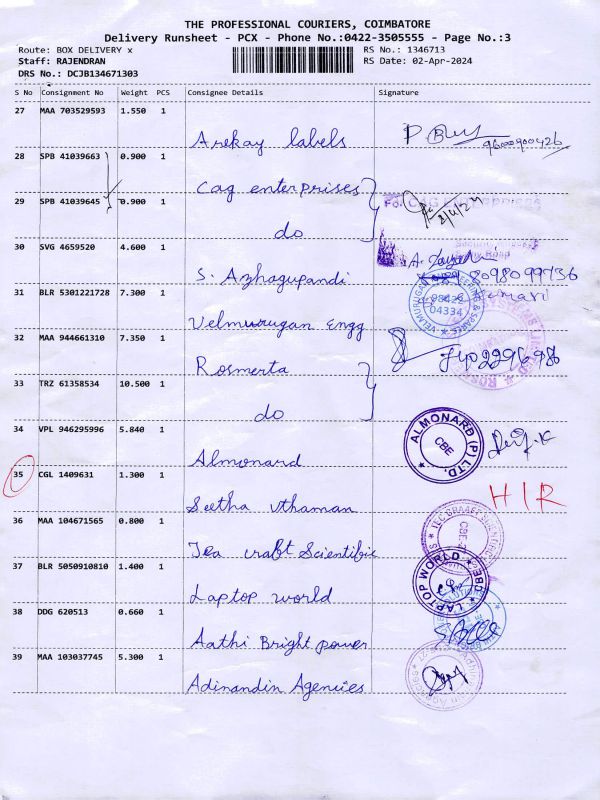 THE PROFESSIONAL COURIERS, COIMBATORE
Delivery Runsheet - PCX - Phone No.:0422-3505555 - Page No.:3
Route: BOX DELIVERY x RS No.: 1346713
Staff: RAJENDRAN RS Date: 02-Apr-2024
DRS No.: DCJB134671303
S No Consignment No Weight PCS Consignee Details Signature
27 MAA 703529593 1.550 1
Arekay labels
28 SPB 41039663 0.900 1
Cag enterprises
29 SPB 41039645 0.900 1
do
30 SVG 4659520 4.600 1
S. Azhagupandi 8098099736
31 BLR 5301221728 7.300 1
Velmurugan Engg
32 MAA 944661310 7.350 1
Rosmerta
33 TRZ 61358534 10.500 1
do
34 VPL 946295996 5.840 1
Almonard ALMONARD (P) LTD. CBE
35 CGL 1409631 1.300 1
Seetha Uthaman HIR
36 MAA 104671565 0.800 1
Tea craft Scientific
37 BLR 5050910810 1.400 1
Laptop world LAPTOP WORLD CBE
38 DDG 620513 0.660 1
Aathi Bright power
39 MAA 103037745 5.300 1
Adinandin Agencies